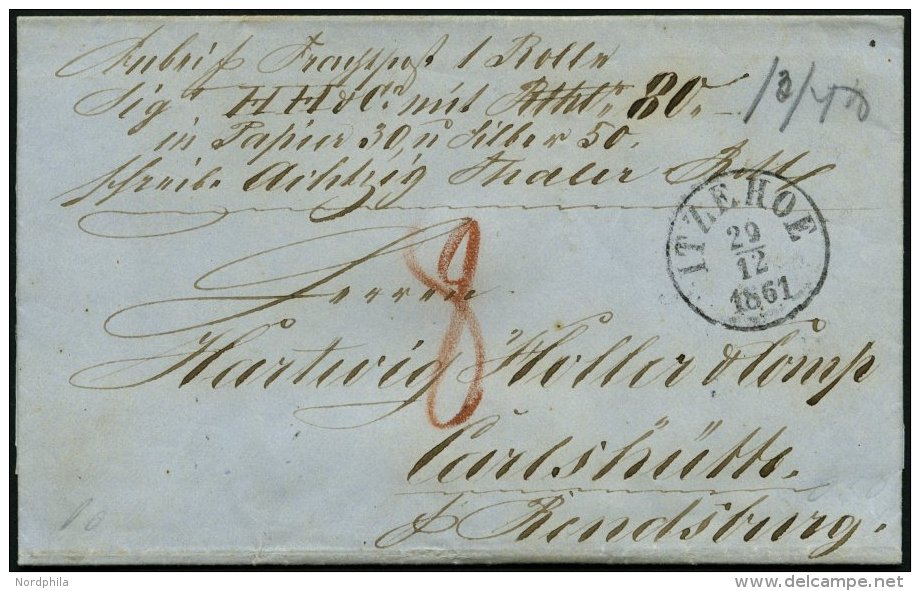 Anbei Frachtpost 1 Rolle
Sig. HH&Co. mit Rthlr. 80.
in Papier 30, u Silber 50.
schreibe Achtzig Thaler
ITZEHOE
29
12
1861
8
Herren
Hartwig Holler & Comp
Carlshütte.
p Rendsburg.
Nordphila
delcampe.net